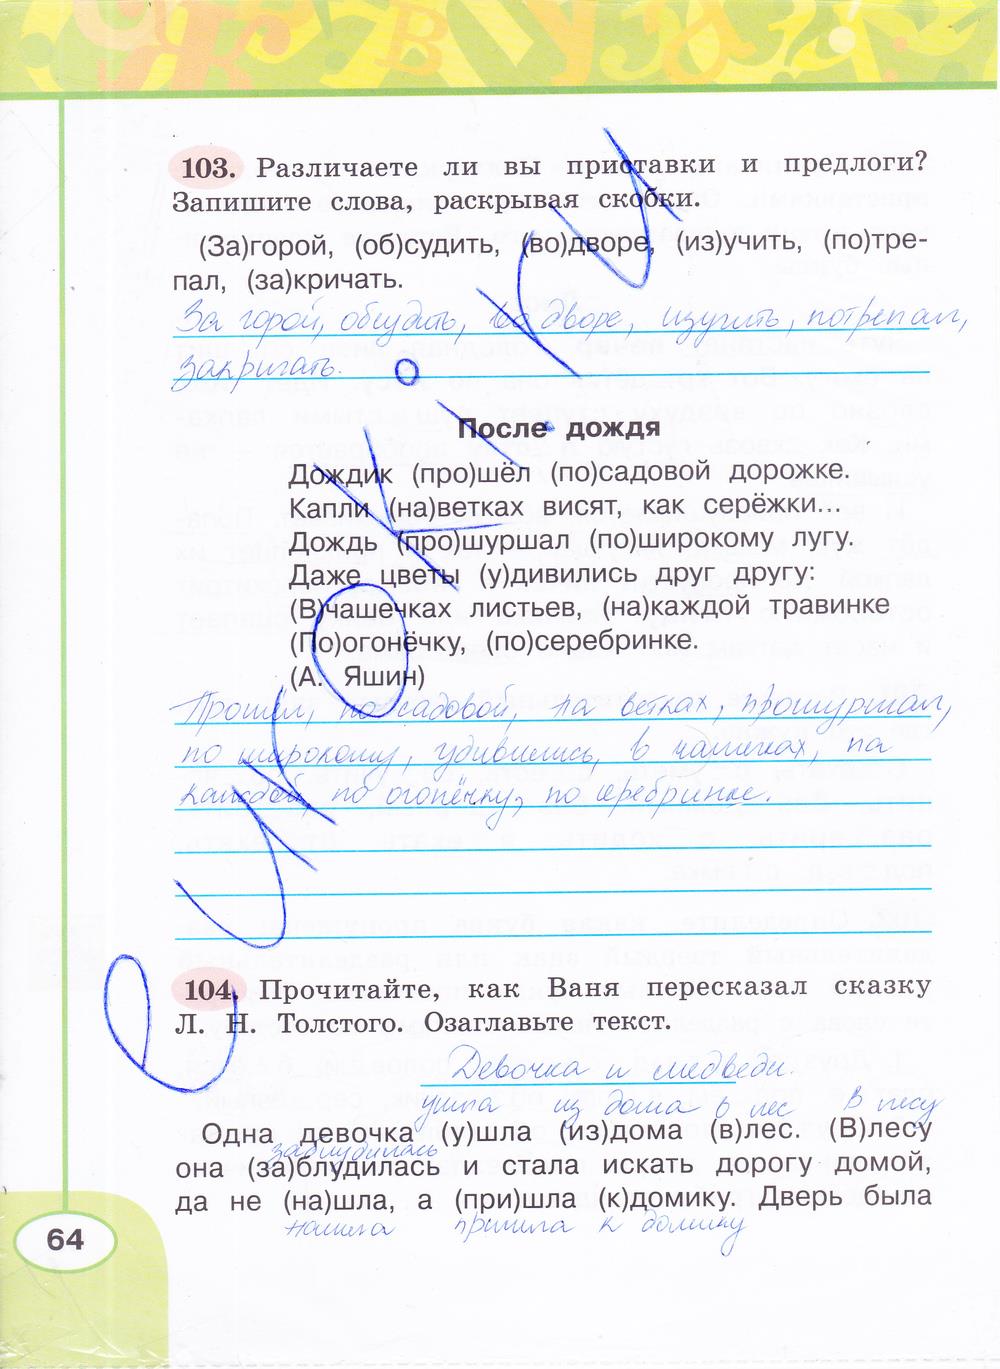 103. Различаете ли вы приставки и предлоги?
Запишите слова, раскрывая скобки.
(За)горой, (об)судить, (во)дворе, (из)учить, (по)тре-
пал, (за)кричать.
За горой, обсудить, во дворе, изучить, потрепал,
закричать.
После дождя
Дождик (про)шёл (по)садовой дорожке.
Капли (на)ветках висят, как серёжки...
Дождь (про)шуршал (по)широкому лугу.
Даже цветы (у)дивились друг другу:
(В)чашечках листьев, (на)каждой травинке
(По)огонёчку, (по)серебринке.
(А. Яшин)
Прошёл, по садовой, на ветках, прошуршал,
по широкому, удивились, в чашечках, на
каждой, по огонёчку, по серебринке.
104. Прочитайте, как Ваня пересказал сказку
Л. Н. Толстого. Озаглавьте текст.
Девочка и медведи.
ушла из дома в лес В лесу
Одна девочка (у)шла (из)дома (в)лес. (В)лесу
заблудилась
она (за)блудилась и стала искать дорогу домой,
да не (на)шла, а (при)шла (к)домику. Дверь была
нашла пришла к домику
64